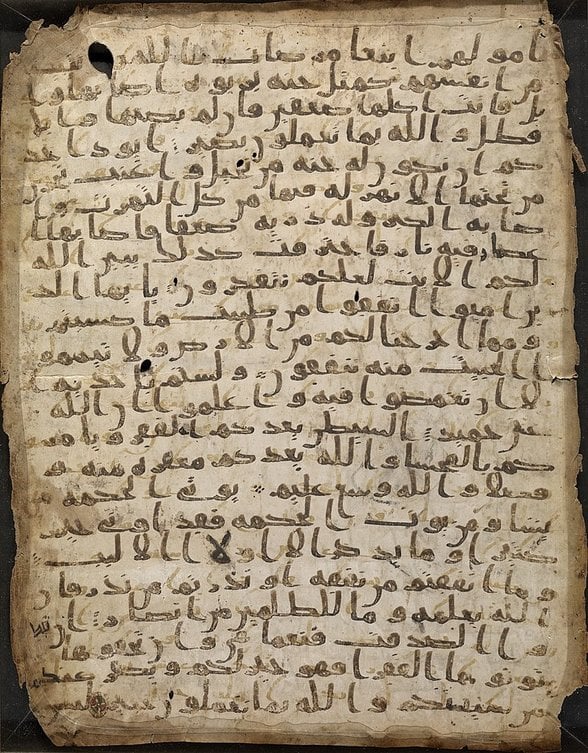 امولهم ابتغا مرضات الله وتثبيتا
من انفسهم كمثل جنة بربوة اصابها وا
بل فاتت اكلها ضعفين فان لم يصبها وابل
فطل والله بما تعملون بصير ايود احد
كم ان تكون له جنة من نخيل واعنب تجري
من تحتها الانهر له فيها من كل الثمرت وا
صابه الكبر وله ذرية ضعفا فاصابها ا
عصار فيه نار فاحترقت كذلك يبين الله
لكم الايت لعلكم تتفكرون يايها الذ
ين امنوا انفقوا من طيبت ما كسبتم
ومما اخرجنا لكم من الارض ولا تيمموا
الخبيث منه تنفقون ولستم باخذيه ا
لا ان تغمضوا فيه واعلموا ان الله
غني حميد الشيطن يعدكم الفقر ويامر
كم بالفحشا والله يعدكم مغفرة منه و
فضلا والله وسع عليم يوتي الحكمة من
يشا ومن يوت الحكمة فقد اوتي خيرا
كثيرا وما يذكر الا اولوا الالبب
وما انفقتم من نفقة او نذرتم من نذر فان
الله يعلمه وما للظلمين من انصار ان
تبدوا الصدقت فنعما هي وان تخفوها
وتوتوها الفقرا فهو خير لكم ويكفر عنكم
من سيتكم والله بما تعملون خبير ليس